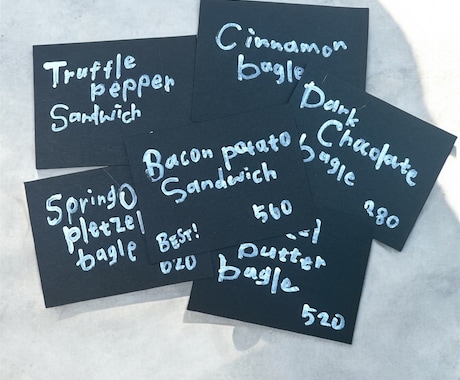 Truffle
pepper
Sandwich
Cinnamon
bagle
Dark
Chacolate
bagle
280
Bacon potato
Sandwich
560
BEST!
SpringO
pletzel
bagle
butter
bagle
520